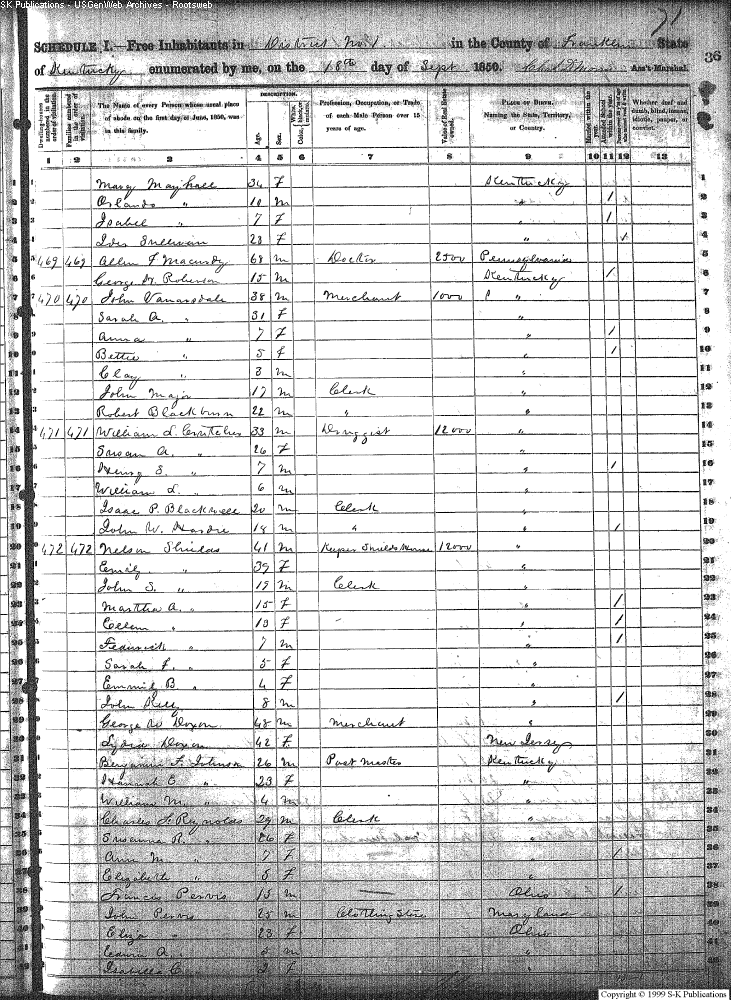 SK Publications - USGenWeb Archives - Rootsweb
71
SCHEDULE I.—Free Inhabitants in District No 1 in the County of Franklin State
36
of Kentucky enumerated by me, on the 18th day of Sept 1850. Ass't-Marshal.
DESCRIPTION.
Dwelling-houses numbered in the order of visitation. Families numbered in the order of visitation. The Name of every Person whose usual place of abode on the first day of June, 1850, was in this family. Age. Sex. Color, Profession, Occupation, or Trade of each Male Person over 15 years of age. Value of Real Estate owned. PLACE OF BIRTH. Naming the State, Territory, or Country. Married within the year. Attended School within the year. Whether deaf and dumb, blind, insane, idiotic, pauper, or convict.
1 2 3 4 5 6 7 8 9 10 11 12 13
1 Mary Mayhall 34 F Kentucky 1
2 Orlando " 10 m " / 2
3 Isabel " 7 F / 3
4 Sullivan 23 F " 4
5 469 469 Allen F Macurdy 68 m Doctor 2500 Pennsylvania 5
6 George W. Roberson 15 m Kentucky / 6
7 470 470 John Vanarsdale 38 m Merchant 1000 " 7
8 Sarah A. " 31 F " 8
9 Anna " 7 F " / 9
10 Bettie " 5 f " / 10
11 Clay " 3 m " 11
12 John Major 17 m Clerk " 12
13 Robert Blackburn 22 m " " 13
14 471 471 William L. Crutcher 33 m Druggist 12000 " 14
15 Susan A. " 26 F " 15
16 Henry S. " 7 m " / 16
17 William L. " 6 m " 17
18 Isaac P. Blackwell 20 m Clerk " 18
19 John W. Hardie 18 m " " / 19
20 472 472 Nelson Shields 41 m Keeper Shields House 12000 " 20
21 Emily " 39 F " 21
22 John S. " 19 m Clerk " 22
23 Marttha A. " 15 F " / 23
24 Ellen " 13 F " / 24
25 Fedrrick " 7 m " / 25
26 Sarah F. " 5 F " 26
27 Emmily B. " 4 F " 27
28 John 8 m " / 28
29 George W Dixon 48 m merchant " 29
30 Lydia Dixon 42 F. New Jersey 30
31 Benjamin F. Johnson 26 m Post Master Kentucky 31
32 Hannah E " 23 F " 32
33 William M. " 4 m " 33
34 Charles F. Reynolds 29 m Clerk " 34
35 Susanna R. " 26 F " 35
36 Ann M. " 7 F " / 36
37 Elizabeth " 5 F " 37
38 Francis Pervis 15 m — Ohio / 38
39 John Pervis 25 m Clothing Store Maryland 39
40 Eliza " 23 F Ohio 40
41 Edwin A. " m " 41
42 Isabella C. " 2 F " 42
Copyright © 1999 S-K Publications